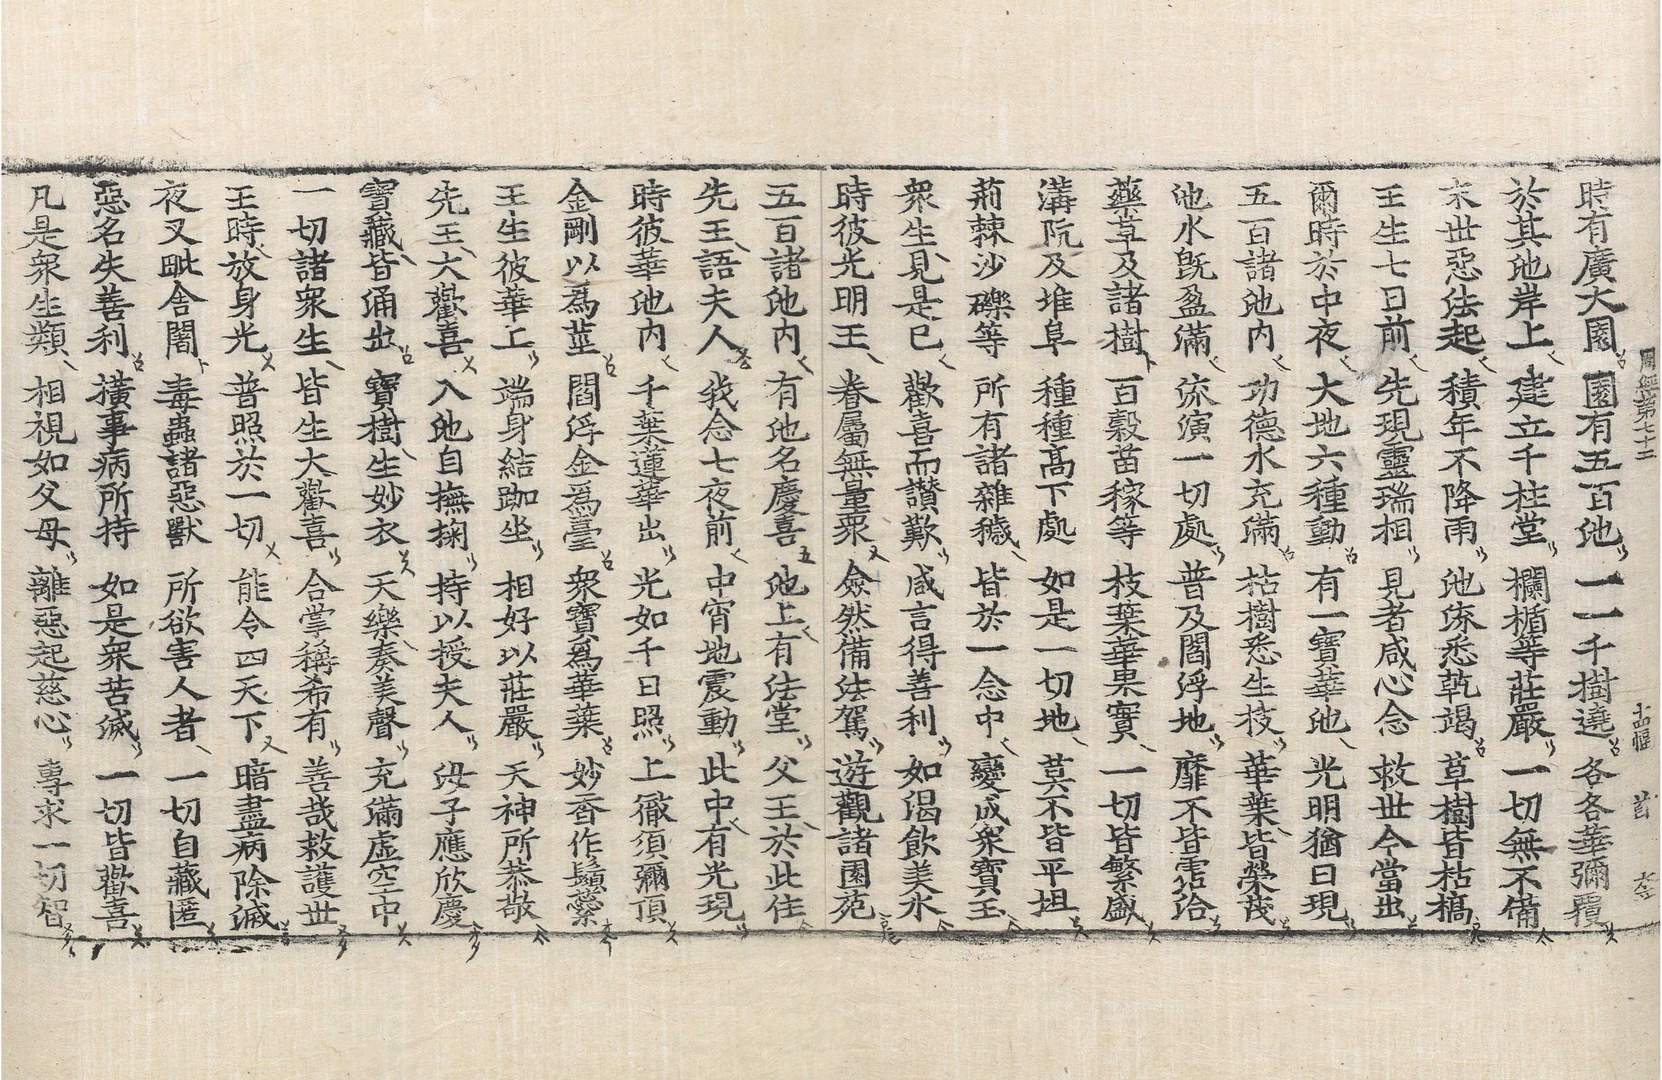 周經第七十二 十四幅
時有廣大園 園有五百池 一一千樹遶 各各華彌覆
於其池岸上 建立千柱堂 欄楯等莊嚴 一切無不備
末世惡法起 積年不降雨 池流悉乾竭 草樹皆枯槁
王生七日前 先現靈瑞相 見者咸心念 救世今當出
爾時於中夜 大地六種動 有一寶華池 光明猶日現
五百諸池內 功德水充滿 枯樹悉生枝 華葉皆榮茂
池水旣盈滿 流演一切處 普及閻浮地 靡不皆霑洽
藥草及諸樹 百穀苗稼等 枝葉華果實 一切皆繁盛
溝阬及堆阜 種種高下處 如是一切地 莫不皆平坦
荊棘沙礫等 所有諸雜穢 皆於一念中 變成衆寶玉
衆生見是已 歡喜而讚歎 咸言得善利 如渴飮美水
時彼光明王 眷屬無量衆 僉然備法駕 遊觀諸園苑
五百諸池內 有池名慶喜 池上有法堂 父王於此住
先王語夫人 我念七夜前 中宵地震動 此中有光現
時彼華池內 千葉蓮華出 光如千日照 上徹須彌頂
金剛以爲莖 閻浮金爲臺 衆寶爲華葉 妙香作鬚蘂
王生彼華上 端身結跏坐 相好以莊嚴 天神所恭敬
先王大歡喜 入池自撫掬 持以授夫人 汝子應欣慶
寶藏皆涌出 寶樹生妙衣 天樂奏美聲 充滿虛空中
一切諸衆生 皆生大歡喜 合掌稱希有 善哉救護世
王時放身光 普照於一切 能令四天下 暗盡病除滅
夜叉毗舍闍 毒蟲諸惡獸 所欲害人者 一切自藏匿
惡名失善利 橫事病所持 如是衆苦滅 一切皆歡喜
凡是衆生類 相視如父母 離惡起慈心 專求一切智